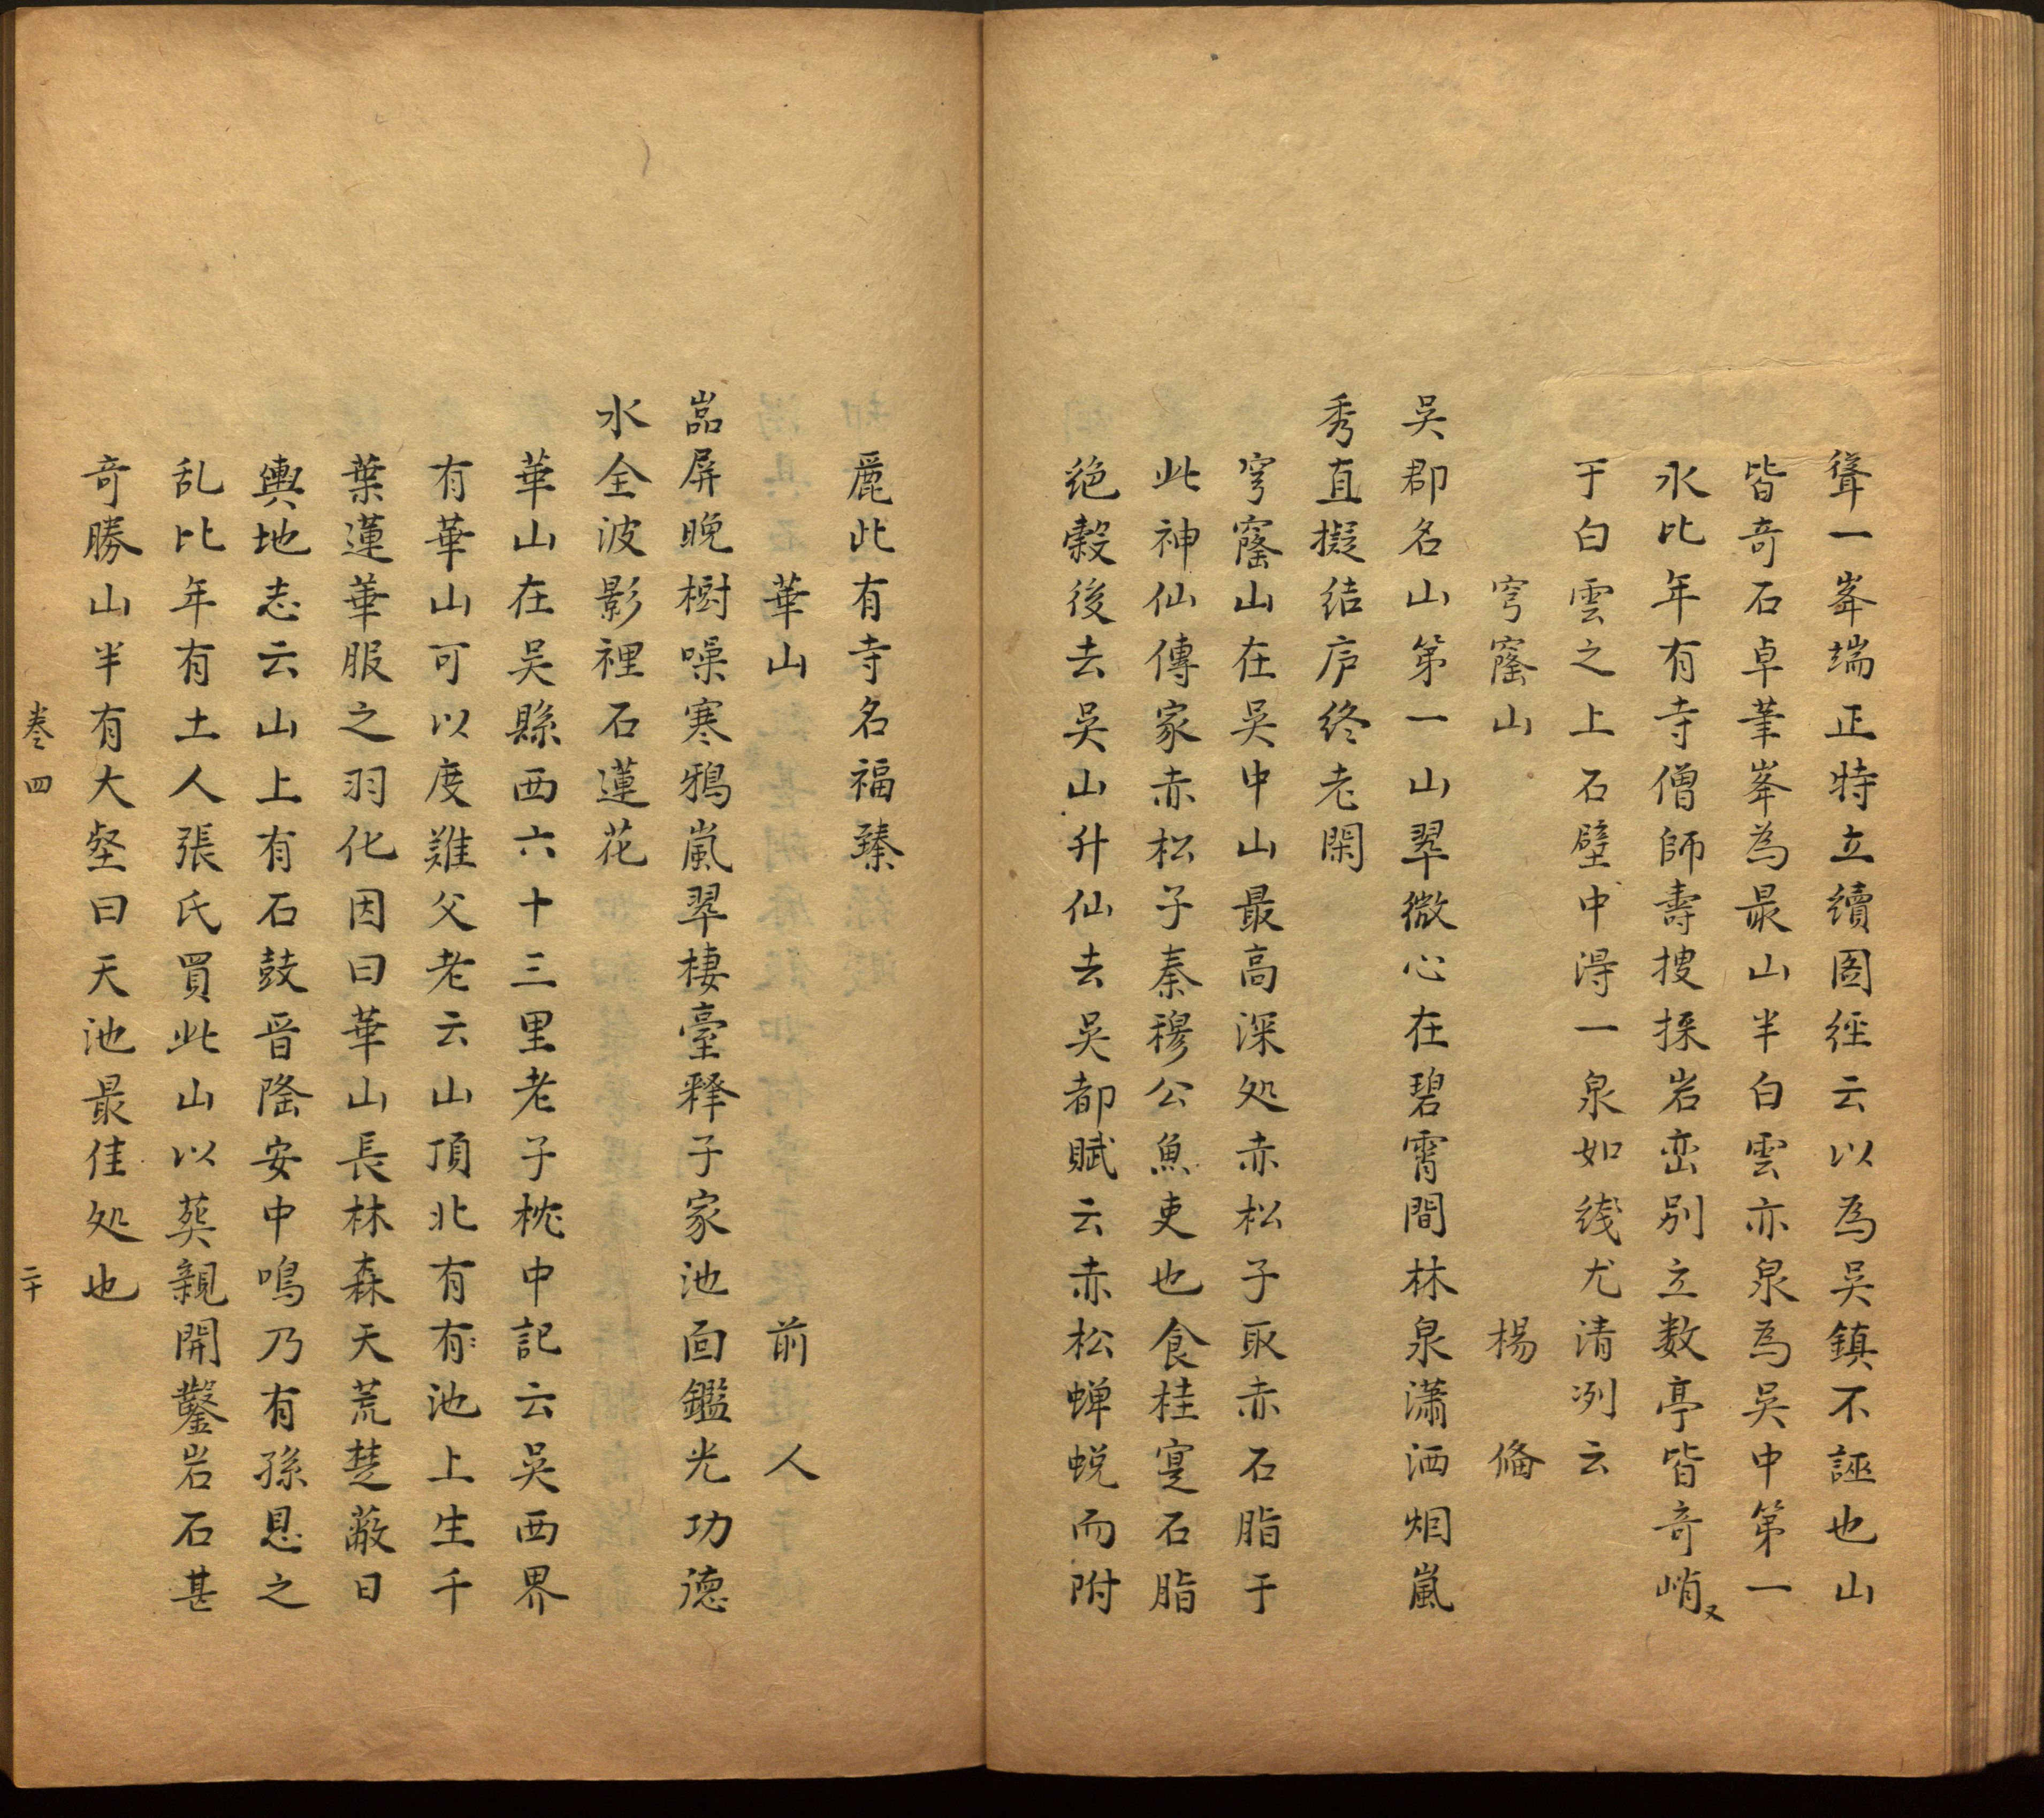 聳一峯端正特立續圖經云以為吳鎮不誣也山
皆奇石卓筆峯為最山半白雲亦泉為吳中第一
水比年有寺僧師壽搜採岩巒別立数亭皆奇峭又
于白雲之上石壁中淂一泉如綫尤清冽云
穹窿山　楊偹
吳郡名山第一山翠微心在碧霄間林泉瀟洒烟嵐
秀直擬结庐终老閑
穹窿山在吳中山最高深処赤松子取赤石脂于
此神仙傳家赤松子秦穆公魚吏也食桂寔石脂
绝穀後去吳山升仙去吳都賦云赤松蝉蜕而附
麗此有寺名福臻
華山　前人
嵓屏晚樹噪寒鴉嵐翠棲臺释子家池面鑑光功德
水全波影裡石蓮花
華山在吴縣西六十三里老子枕中記云吳西界
有華山可以度難父老云山頂北有有池上生千
葉蓮華服之羽化因曰華山長林森天荒楚蔽日
輿地志云山上有石鼓晋隆安中鳴乃有孫恩之
乱比年有土人張氏買此山以葬親開鑿岩石甚
奇勝山半有大壑曰天池最佳処也
卷四　二十